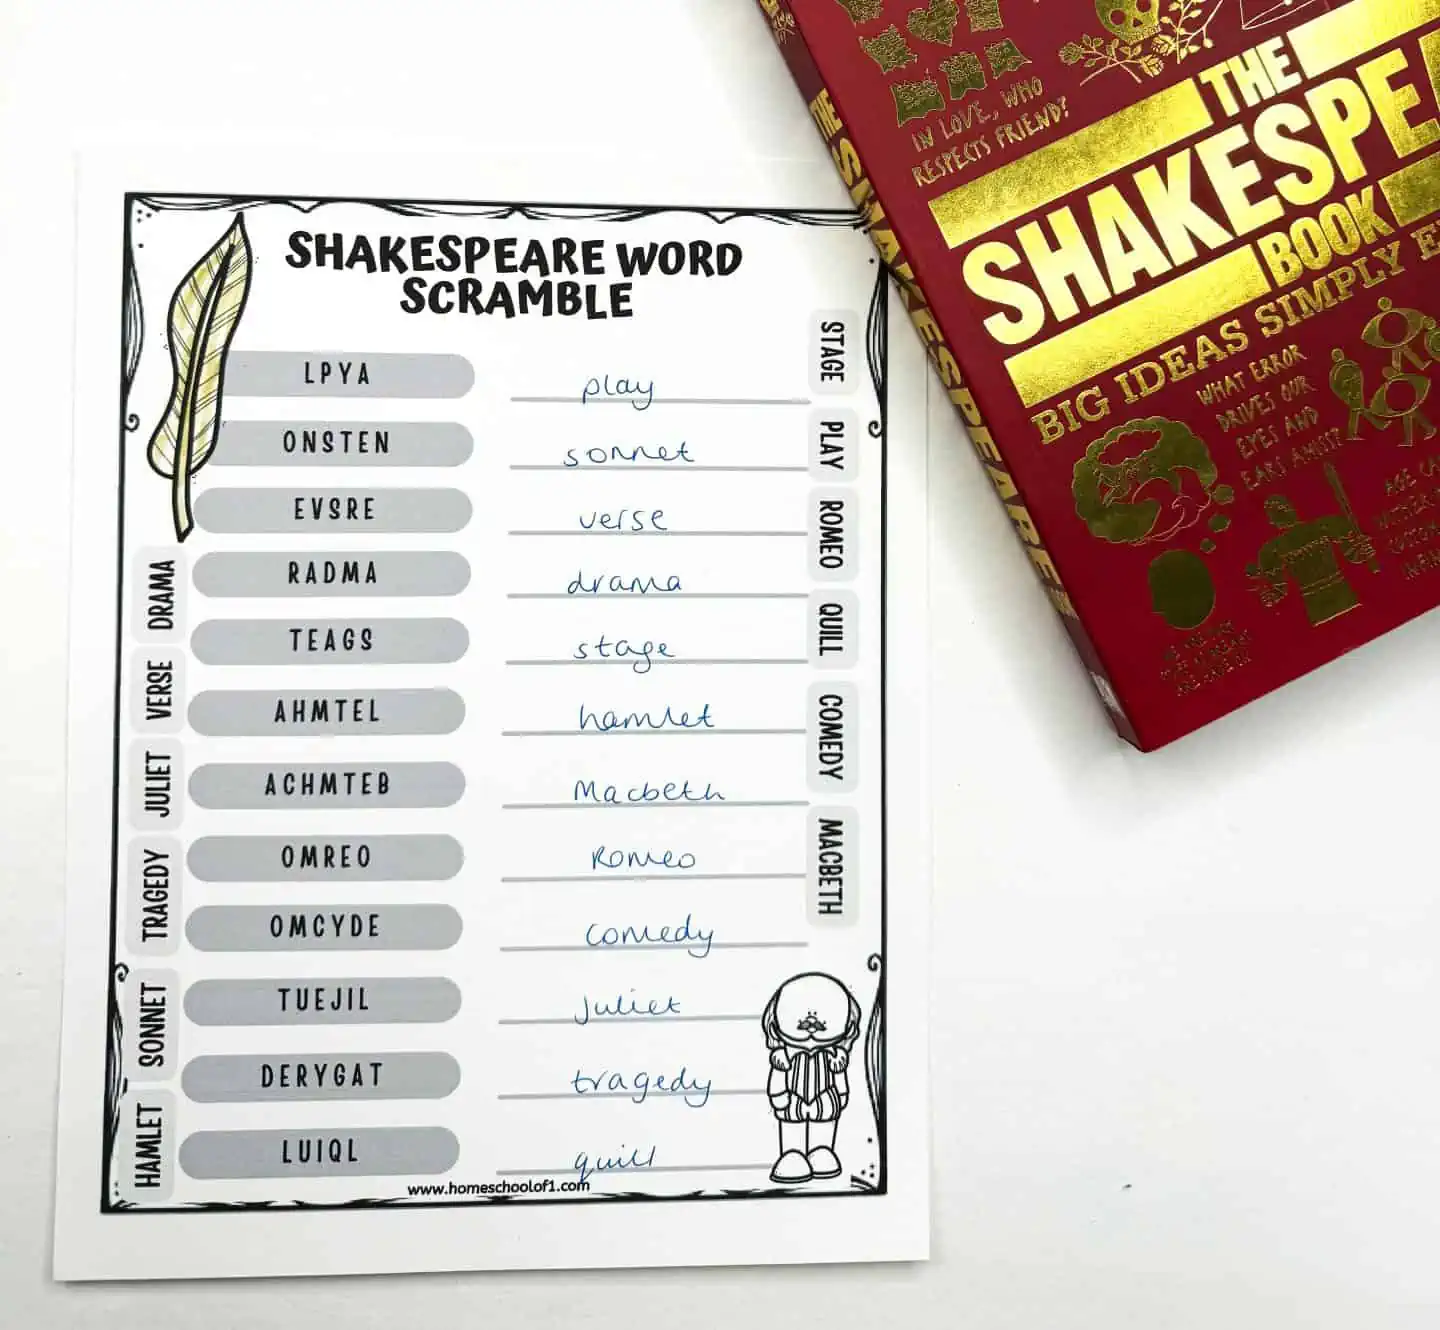 SHAKESPEARE WORD
SCRAMBLE
LPYA play
ONSTEN sonnet
EVSRE verse
RADMA drama
TEAGS stage
AHMTEL hamlet
ACHMTEB Macbeth
OMREO Romeo
OMCYDE comedy
TUEJIL juliet
DERYGAT tragedy
LUIQL quill
www.homeschoolof1.com
DRAMA
VERSE
JULIET
TRAGEDY
SONNET
HAMLET
STAGE
PLAY
ROMEO
QUILL
COMEDY
MACBETH
IN LOVE, WHO
RESPECTS FRIEND?
THE
SHAKESPE
BOOK
BIG IDEAS SIMPLY
WHAT ERROR
DRIVES OUR
EYES AND
EARS AMISS?
THE SHAKESPEARE